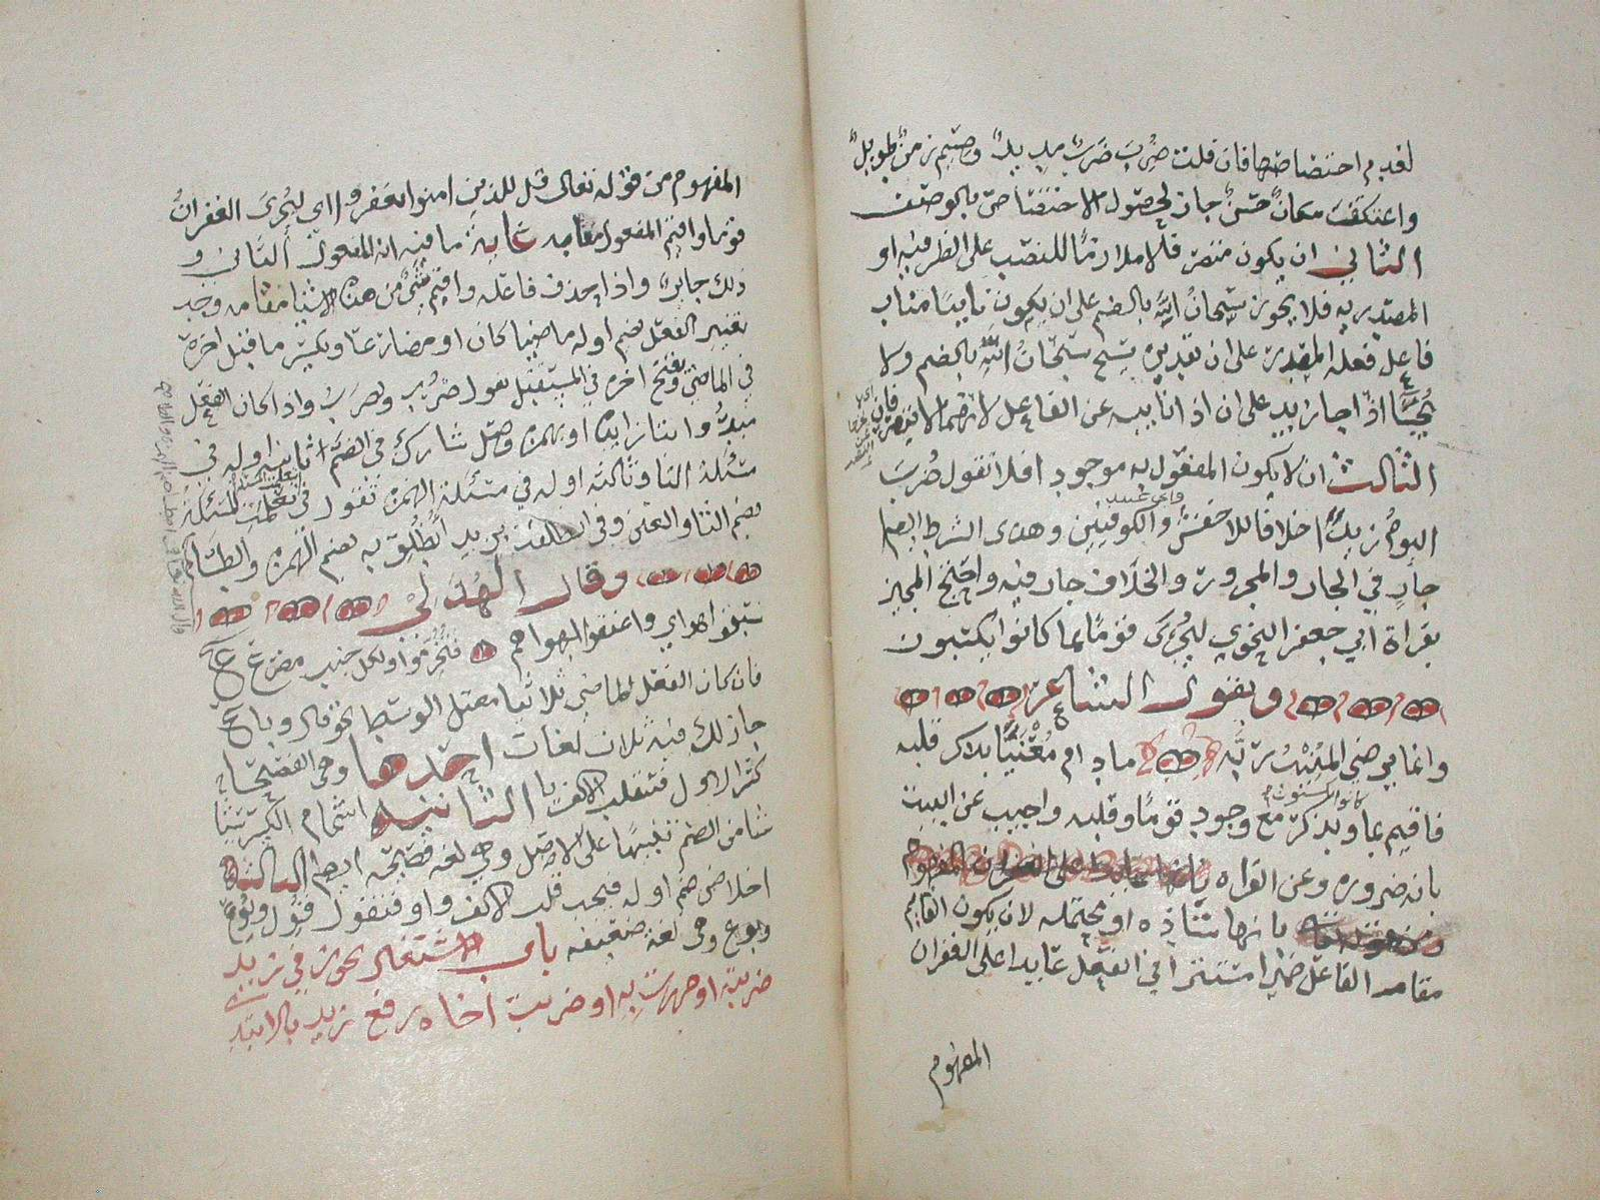 لعدم اختصاصها فان قلت ضُرِبَ ضَربٌ مديدٌ وصِيم زمنٌ طويلٌ
واعتكفَ مكانٌ حَسَنٌ جاز لحصول الاختصاص بالوصف
الثاني ان يكون متصرفا لا ملازمًا للنصب على الظرفيه او
المصدريه فلا يجوز سبحانُ الله بالضم على ان يكون نايبًا مناب
فاعل فعله المقدر على ان تقديره يسبح سبحانُ الله بالضم ولا
يُجَاءُ اذا جا زيد على ان اذا نايبه عن الفاعل لانهما لا يتصرفان
الثالث ان لا يكون المفعول به موجود افلا تقول ضُرِبَ
اليومُ زيدًا خلافا للاخفش والكوفيين وهذا الشرط ايضا
جارٍ في الجار والمجرور والخلاف جار فيه واحتج المجيز
بقراة ابي جعفر اليجزى قومًا بما كانوا يكتبون
وبقول الشاعر
وانما يرضي المنيبُ ربّه ما دام مَعْنيًّا بذكر قلبه
كانوا يكسبون
فاقيم بما وبذكر مع وجود قومًا وقلبه واجيب عن البيت
بانه ضروره وعن القراه
بانها شاذه او محتمله لان يكون القايم
مقام الفاعل ضميرا مستترا في الفعل عايدا على الغفران
المفهوم
المفهوم من قوله تعالى قل للذين امنوا يغفروا اي ليُجزَى الغفرانُ
قوما واقيم المفعول مقامه غايه ما فيه انه المفعول الثاني و
ذلك جايز واذا حذف فاعله واقيم شيٌ من هذه الاشيا مقامه وجب
تغيير الفعل بضم اوله ماضيا كان او مضارعا وبكسر ما قبل اخره
في الماضي وبفتح اخره في المستقبل تقول ضُرِب ويُضرَب واذا كان الفعل
مبدوا بتا زايده او بهمزة وصل شارك في الضم ثانيه اوله في
مسئلة التا وثالثه اوله في مسئلة الهمزه تقول في تعلمت المسئلة
بضم التا والعين وفي انطلقت بزيد اُنطُلِق به بضم الهمزه والطا
وقال الهذلي
سبقوا هواي واعنقوا لهواهم فتُخُرِّموا ولكل جنب مصرع
فان كان الفعل الماضي ثلاثيا معتل الوسط نحو قال وباع
جاز لك فيه ثلاث لغات احدها وهي الفصحى
كسر الاول فتنقلب الالف يا الثانيه اشمام الكسر شيئا
من الضم تنبيهًا على الاصل وهي لغه فصيحه ايضا الثالثه
اخلاص ضم اوله فيجب قلب الالف واوا فتقول قُول وبُوع
وهي لغه ضعيفه باب الاشتغال يجوز في زيد
ضربته او مررت به او ضربت اخاه رفع زيد بالابتدا